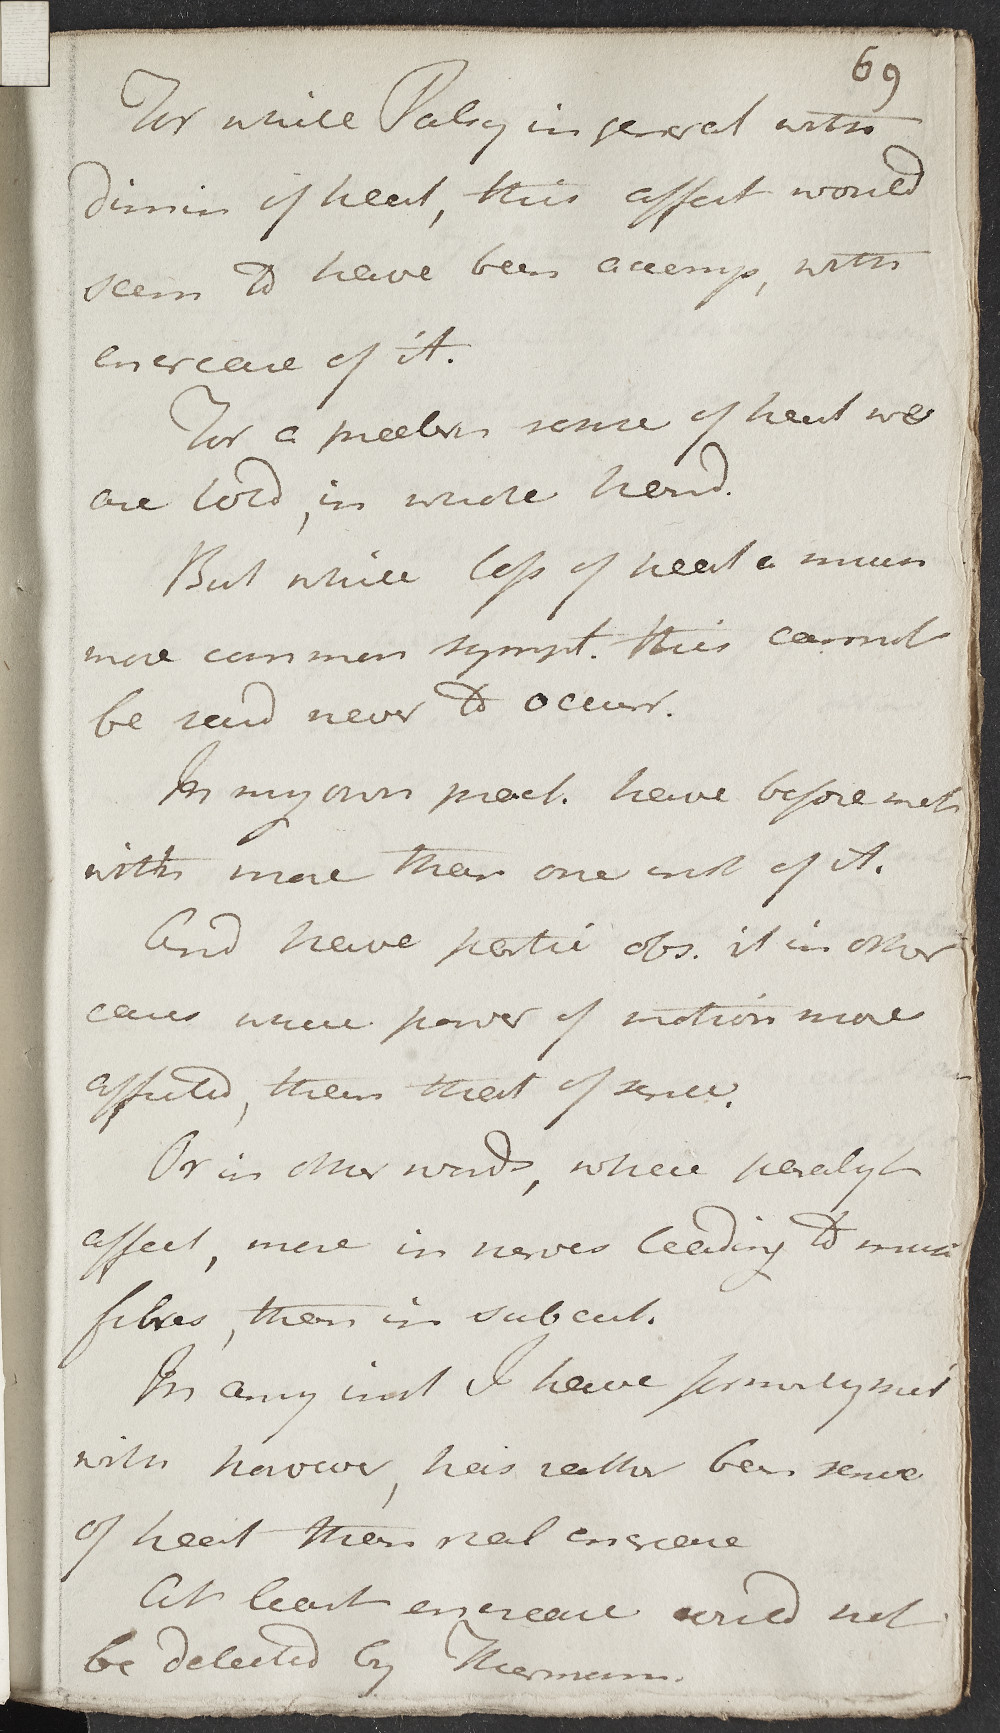 69
For while Palsy in general with
dimin of heat, this affect would
seem to have been accomp, with
encrease of it.
For a preetern sense of heat we
are told, in whole hand.
But while loss of heat a much
more common sympt. this cannot
be said never to occurr.
In my own pract. have before met
with more than one inst of it.
And have partic obs. it in other
cases where power of motion more
affected, than that of sense.
Or in other words, where paralyt
affect, more in nerves leading to musc
fibres, than in subcut.
In any inst I have formerly met
with however, has rather been sense
of heat than real encrease
At least encrease could not
be detected by Thermom.